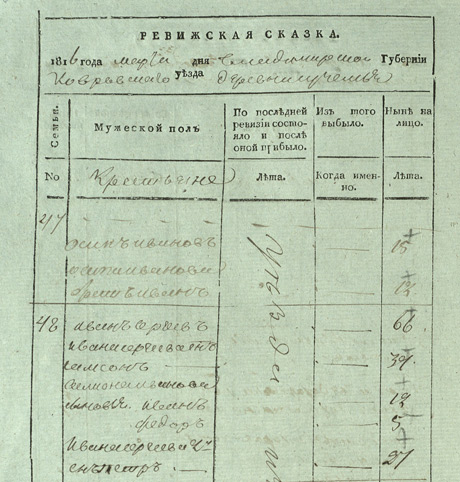 РЕВИЖСКАЯ СКАЗКА.
1816 года марта дня Владимирской Губернiи
Ковровскаго уѣзда деревни
Семьи.
Мужеской полъ
По послѣдней ревизiи состояло и послѣ оной прибыло.
Изъ того выбыло.
Нынѣ на лицо.
No
Крестьяне
Лѣта.
Когда именно.
Лѣта.
47
осипъ ивановъ 15
осипа иванова
братъ иванъ 12
48 иванъ сергѣевъ 66
ивана сергѣева сынъ
самсонъ 39
самсона иванова 12
сыновья иванъ
федоръ 5
ивана сергѣева
сынъ петръ 27